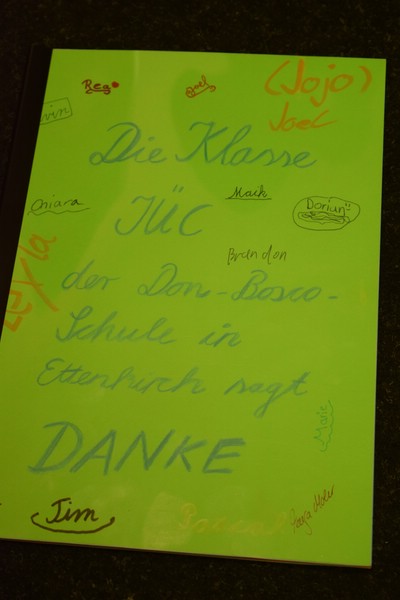 Rea
Joel
(Jojo)
Joel
vin
Die Klasse
Chiara
Maik
JÜC
Dorian
Brandon
Leyla
der Don-Bosco-
Schule in
Ettenkirch sagt
Marie
DANKE
Jim